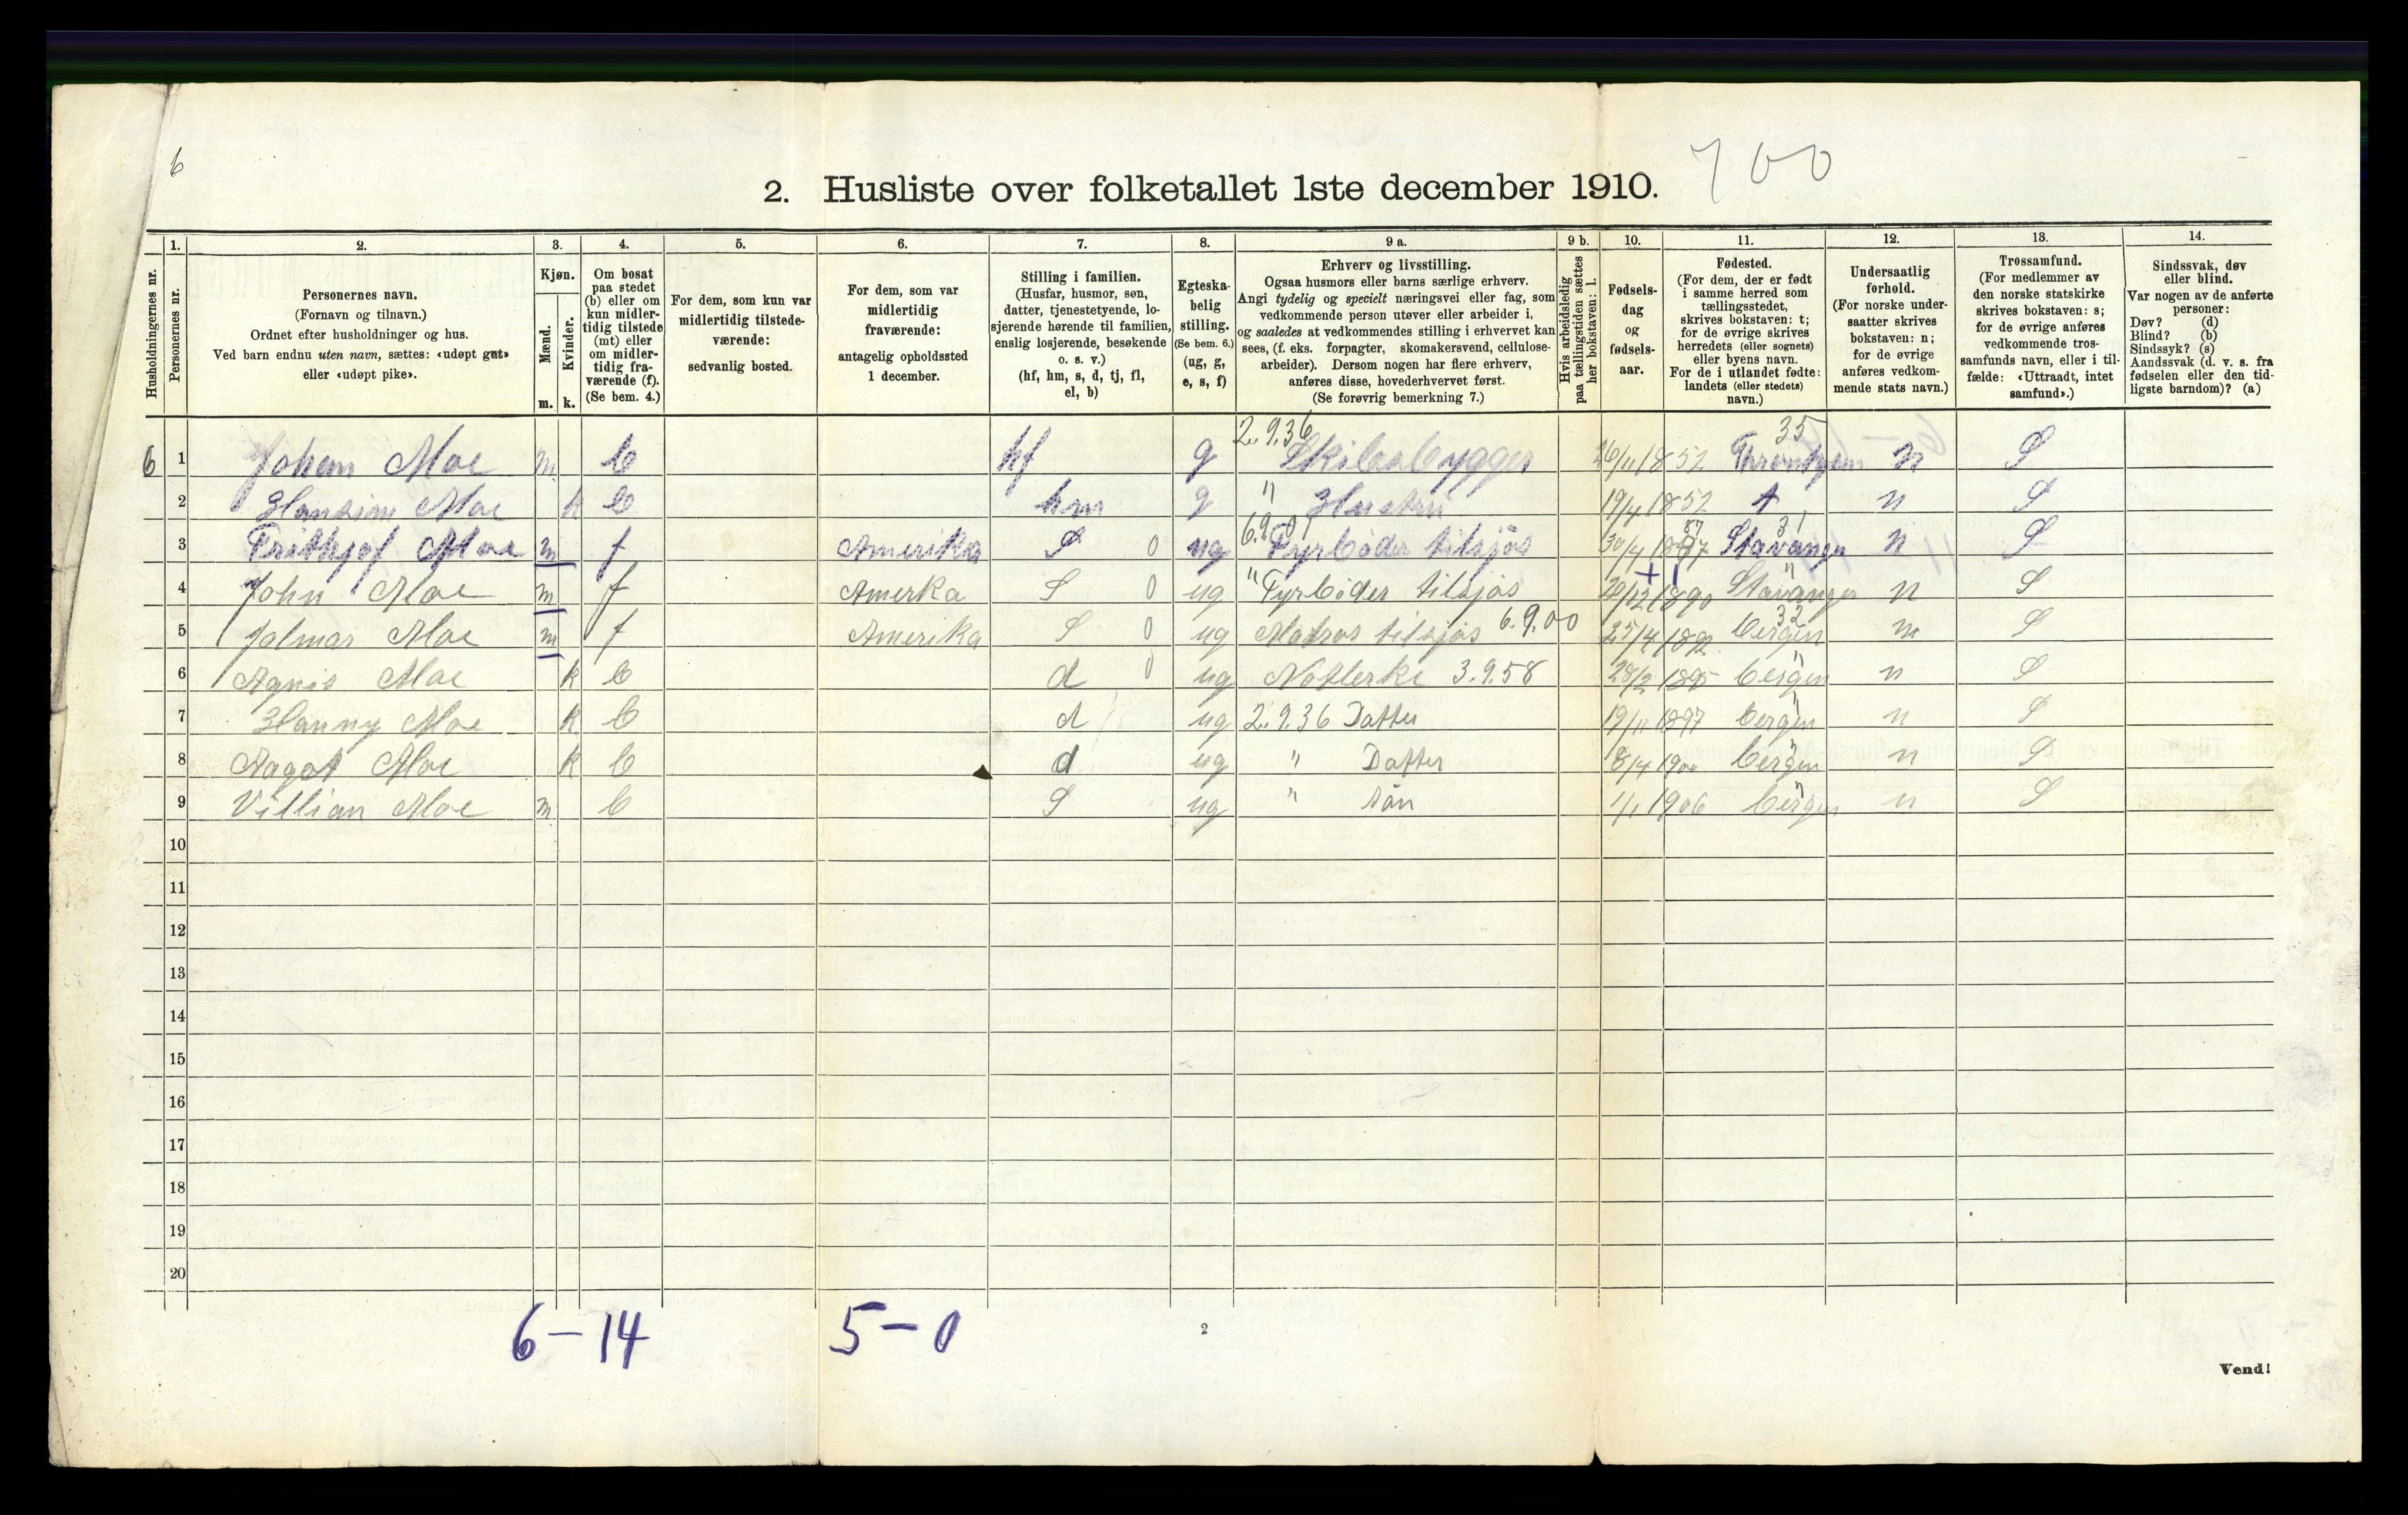 6
2. Husliste over folketallet 1ste december 1910. 700
Husholdningernes nr.
1. Personernes nr.
2. Personernes navn.
(Fornavn og tilnavn.)
Ordnet efter husholdninger og hus.
Ved barn endnu uten navn, sættes: «udøpt gut»
eller «udøpt pike».
3. Kjøn.
Mænd. m.
Kvinder. k.
4. Om bosat
paa stedet
(b) eller om
kun midler-
tidig tilstede
(mt) eller
om midler-
tidig fra-
værende (f).
(Se bem. 4.)
5. For dem, som kun var
midlertidig tilstede-
værende:
sedvanlig bosted.
6. For dem, som var
midlertidig
fraværende:
antagelig opholdssted
1 december.
7. Stilling i familien.
(Husfar, husmor, søn,
datter, tjenestetyende, lo-
sjerende hørende til familien,
enslig losjerende, besøkende
o. s. v.)
(hf, hm, s, d, tj, fl,
el, b)
8. Egteska-
belig
stilling.
(Se bem. 6.)
(ug, g,
e, s, f)
9 a. Erhverv og livsstilling.
Ogsaa husmors eller barns særlige erhverv.
Angi tydelig og specielt næringsvei eller fag, som
vedkommende person utøver eller arbeider i,
og saaledes at vedkommendes stilling i erhvervet kan
sees, (f. eks. forpagter, skomakersvend, cellulose-
arbeider). Dersom nogen har flere erhverv,
anføres disse, hovederhvervet først.
(Se forøvrig bemerkning 7.)
9 b. Hvis arbeidsledig
paa tællingstiden sættes
her bokstaven: l.
10. Fødsels-
dag
og
fødsels-
aar.
11. Fødested.
(For dem, der er født
i samme herred som
tællingsstedet,
skrives bokstaven: t;
for de øvrige skrives
herredets (eller sognets)
eller byens navn.
For de i utlandet fødte:
landets (eller stedets)
navn.)
12. Undersaatlig
forhold.
(For norske under-
saatter skrives
bokstaven: n;
for de øvrige
anføres vedkom-
mende stats navn.)
13. Trossamfund.
(For medlemmer av
den norske statskirke
skrives bokstaven: s;
for de øvrige anføres
vedkommende tros-
samfunds navn, eller i til-
fælde: «Uttraadt, intet
samfund».)
14. Sindssvak, døv
eller blind.
Var nogen av de anførte
personer:
Døv? (d)
Blind? (b)
Sindssyk? (s)
Aandssvak (d. v. s. fra
fødselen eller den tid-
ligste barndom)? (a)
2.9.36 35
6 1 Johan Moe m b hf g 26/11 1852 n S
2 Moe k b hm g " Hustru 19/4 1852 t n S
6.9.01 87 31
3 Frithjof Moe m f Amerika S 0 ug Fyrbøder tilsjøs 30/4 1887 Stavanger n S
4 John Moe m f Amerka S 0 ug " Fyrbøder tilsjøs 20/12 1890 Stavanger " n S
5 Jalmar Moe m f Amerika S 0 ug Matros tilsjøs 6.9.00 25/4 1892 bergen 32 n S
6 Agnis Moe k b d 0 ug 3.9.58 28/2 1895 bergen " n S
7 Hanny Moe k b d ug 2.9.36 Datter 19/11 1897 bergen " n S
8 Aagot Moe k b d ug " Datter 8/4 1900 bergen " n S
9 Villian Moe m b S ug " søn 1/1 1906 bergen " n S
10
11
12
13
14
15
16
17
18
19
20
6-14 5-0
2
Vend!